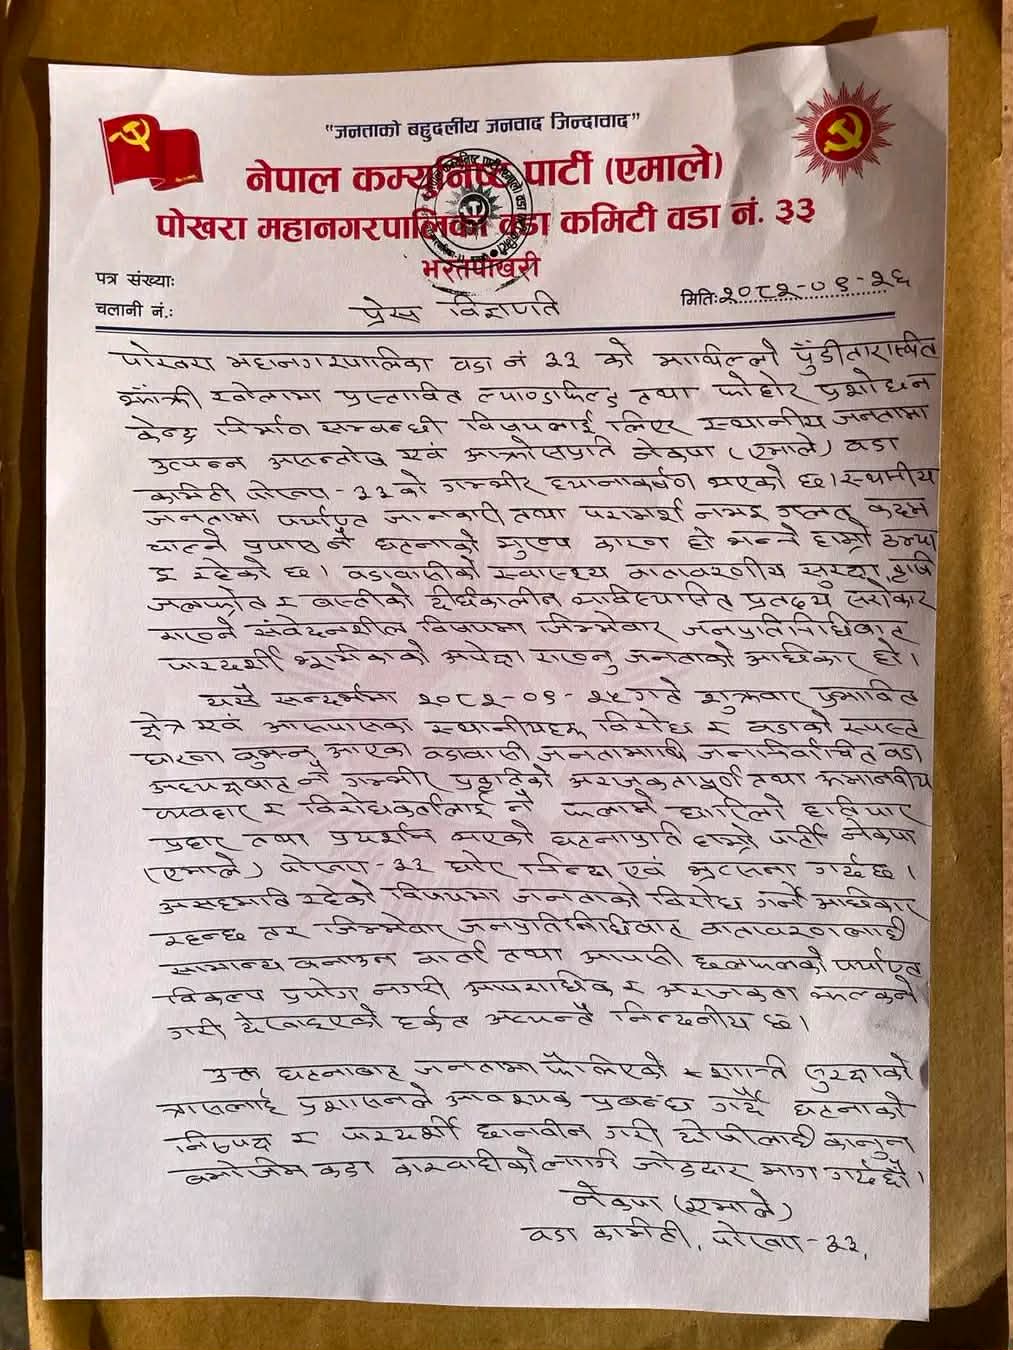 "जनताको बहुदलीय जनवाद जिन्दावाद"
नेपाल कम्युनिष्ट पार्टी (एमाले)
पोखरा महानगरपालिका वडा कमिटी वडा नं. ३३
भरतपोखरी
पत्र संख्याः
चलानी नं.:
मितिः २०८२-०९-२६
प्रेस विज्ञप्ति
पोखरा महानगरपालिका वडा नं ३३ को माथिल्लो पुँडीतारास्थित
झाँक्री खोलामा प्रस्तावित ल्याण्डफिल्ड तथा फोहोर प्रशोधन
केन्द्र निर्माण सम्बन्धी विषयलाई लिएर स्थानीय जनतामा
उत्पन्न असन्तोष एवं आक्रोसप्रति नेकपा (एमाले) वडा
कमिटी पोखरा-३३को गम्भीर ध्यानाकर्षण भएको छ। स्थानीय
जनतामा पर्याप्त जानकारी तथा परामर्श नभइ गलत कदम
चाल्ने प्रयास नै घटनाको मुख्य कारण हो भन्ने हाम्रो ठम्या
इ रहेको छ। वडावासीको स्वास्थ्य वातावरणीय सुरक्षा, कृषि
जलस्रोत र वस्तीको दीर्घकालीन भविष्यसित प्रत्यक्ष सरोकार
राख्ने संवेदनशील विषयमा जिम्मेवार जनप्रतिनिधिबाट
पारदर्शी भूमिकाको अपेक्षा राख्नु जनताको अधिकार हो।
यसै सन्दर्भमा २०८२-०९-२५ गते शुक्रवार प्रभावित
क्षेत्र एवं आसपासका स्थानीयहरू विरोध र वडाको स्पस्ट
धारणा बुझ्न आएका वडावासी जनतामाथि जननिर्वाचित वडा
अध्यक्षबाट नै गम्भीर प्रकृतिको अराजकतापूर्ण तथा अमानवीय
व्यवहार र विरोधकर्तालाई नै फलामे धारिलो हतियार
प्रहार तथा प्रदर्शन भएको घटनाप्रति हाम्रो पार्टी नेकपा
(एमाले) पोखरा-३३ घोर निन्दा एवं भत्सना गर्दछ।
असहमति रहेको विषयमा जनताको विरोध गर्ने अधिकार
रहन्छ तर जिम्मेवार जनप्रतिनिधिबाट वातावरणलाई
सामान्य बनाउन वार्ता तथा आपसी छलफलको पर्याप्त
विकल्प प्रयोग नगरी आपराधिक र अराजकता झल्कने
गरी देखाइएको हर्कत अत्यन्तै निन्दनीय छ।
उक्त घटनाबाट जनतामा फैलिएको र शान्ति सुरक्षाको
त्रासलाई प्रशासनले आवश्यक प्रबन्ध गर्दै घटनाको
निष्पक्ष र पारदर्शी छानबीन गरी दोषीलाई कानुन
बमोजिम कडा कारवाहीको लागि जोडदार माग गर्दछौं।
नेकपा (एमाले)
वडा कमिटी, पोखरा-३३,